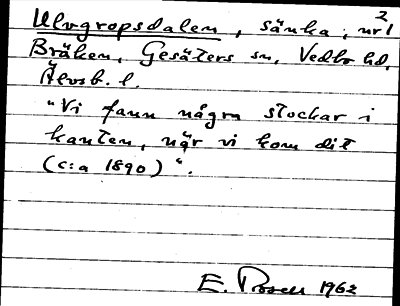 Ulvgropsdalen, sänka, nr 1
2
Bräken, Gesäters sn, Vedbo hd,
Älvsb. l.
"Vi fann några stockar i
kanten, när vi kom dit
(c:a 1890)".
E. 1962